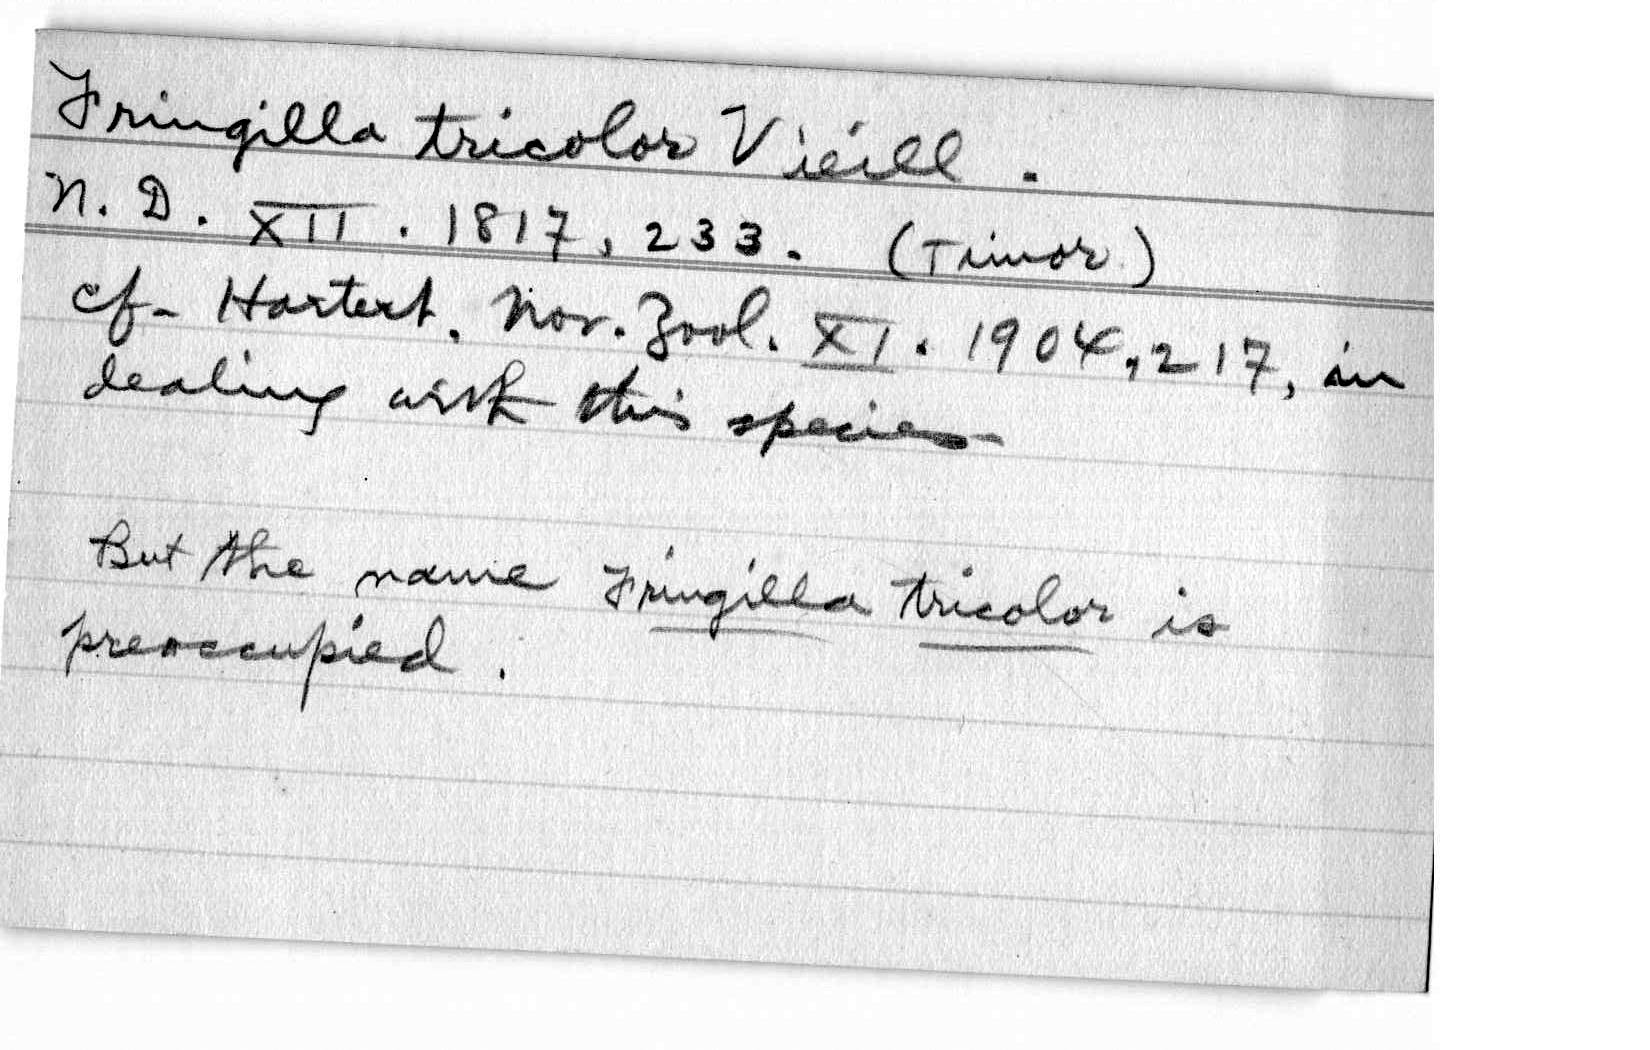 Fringilla tricolor Vieill.
N. D. XII. 1817, 233. (Timor)
cf. Hartert. Nov. Zool. XI. 1904, 217, in
dealing with this species
But the name Fringilla tricolor is
preoccupied.